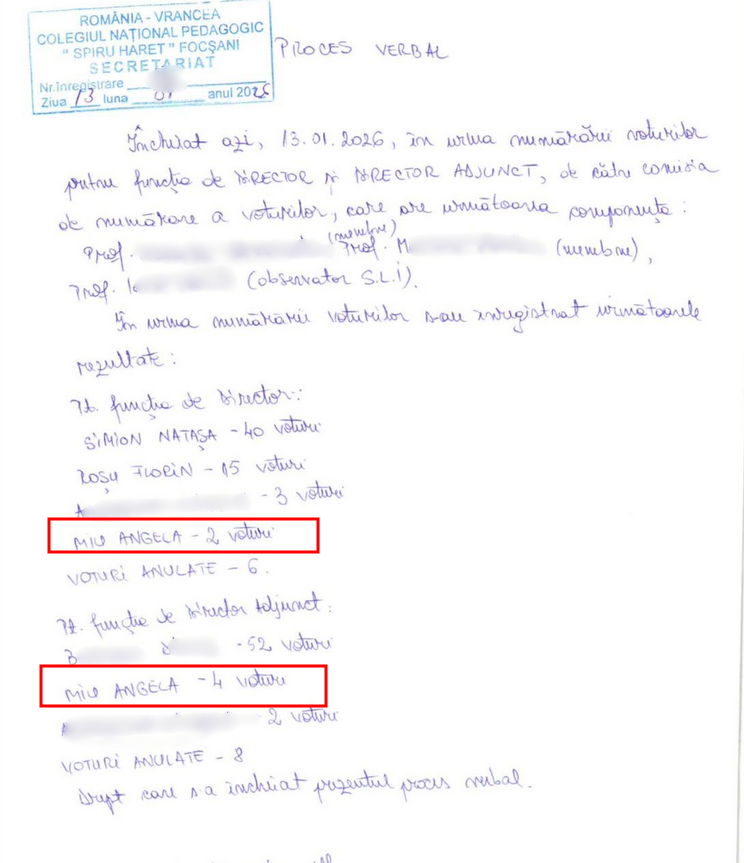 ROMÂNIA - VRANCEA
COLEGIUL NAŢIONAL PEDAGOGIC
" SPIRU HARET " FOCŞANI
SECRETARIAT
Nr.înregistrare
Ziua 13 luna 01 anul 2026
PROCES VERBAL
Încheiat azi, 13.01.2026, în urma numărării voturilor
pentru funcția de DIRECTOR și DIRECTOR ADJUNCT, de către comisia
de numărare a voturilor, care are următoarea componență:
(membru)
Prof. Prof. M (membru),
Prof. (observator S.L.I).
În urma numărării voturilor s-au înregistrat următoarele
rezultate:
Pt. funcția de Director:
SIMION NATAȘA - 40 voturi
ROȘU FLORIN - 15 voturi
A - 3 voturi
MIU ANGELA - 2 voturi
VOTURI ANULATE - 6.
Pt. funcția de Director Adjunct:
- 52 voturi
MIU ANGELA - 4 voturi
A 2 voturi
VOTURI ANULATE - 8
Drept care s-a încheiat prezentul proces verbal.